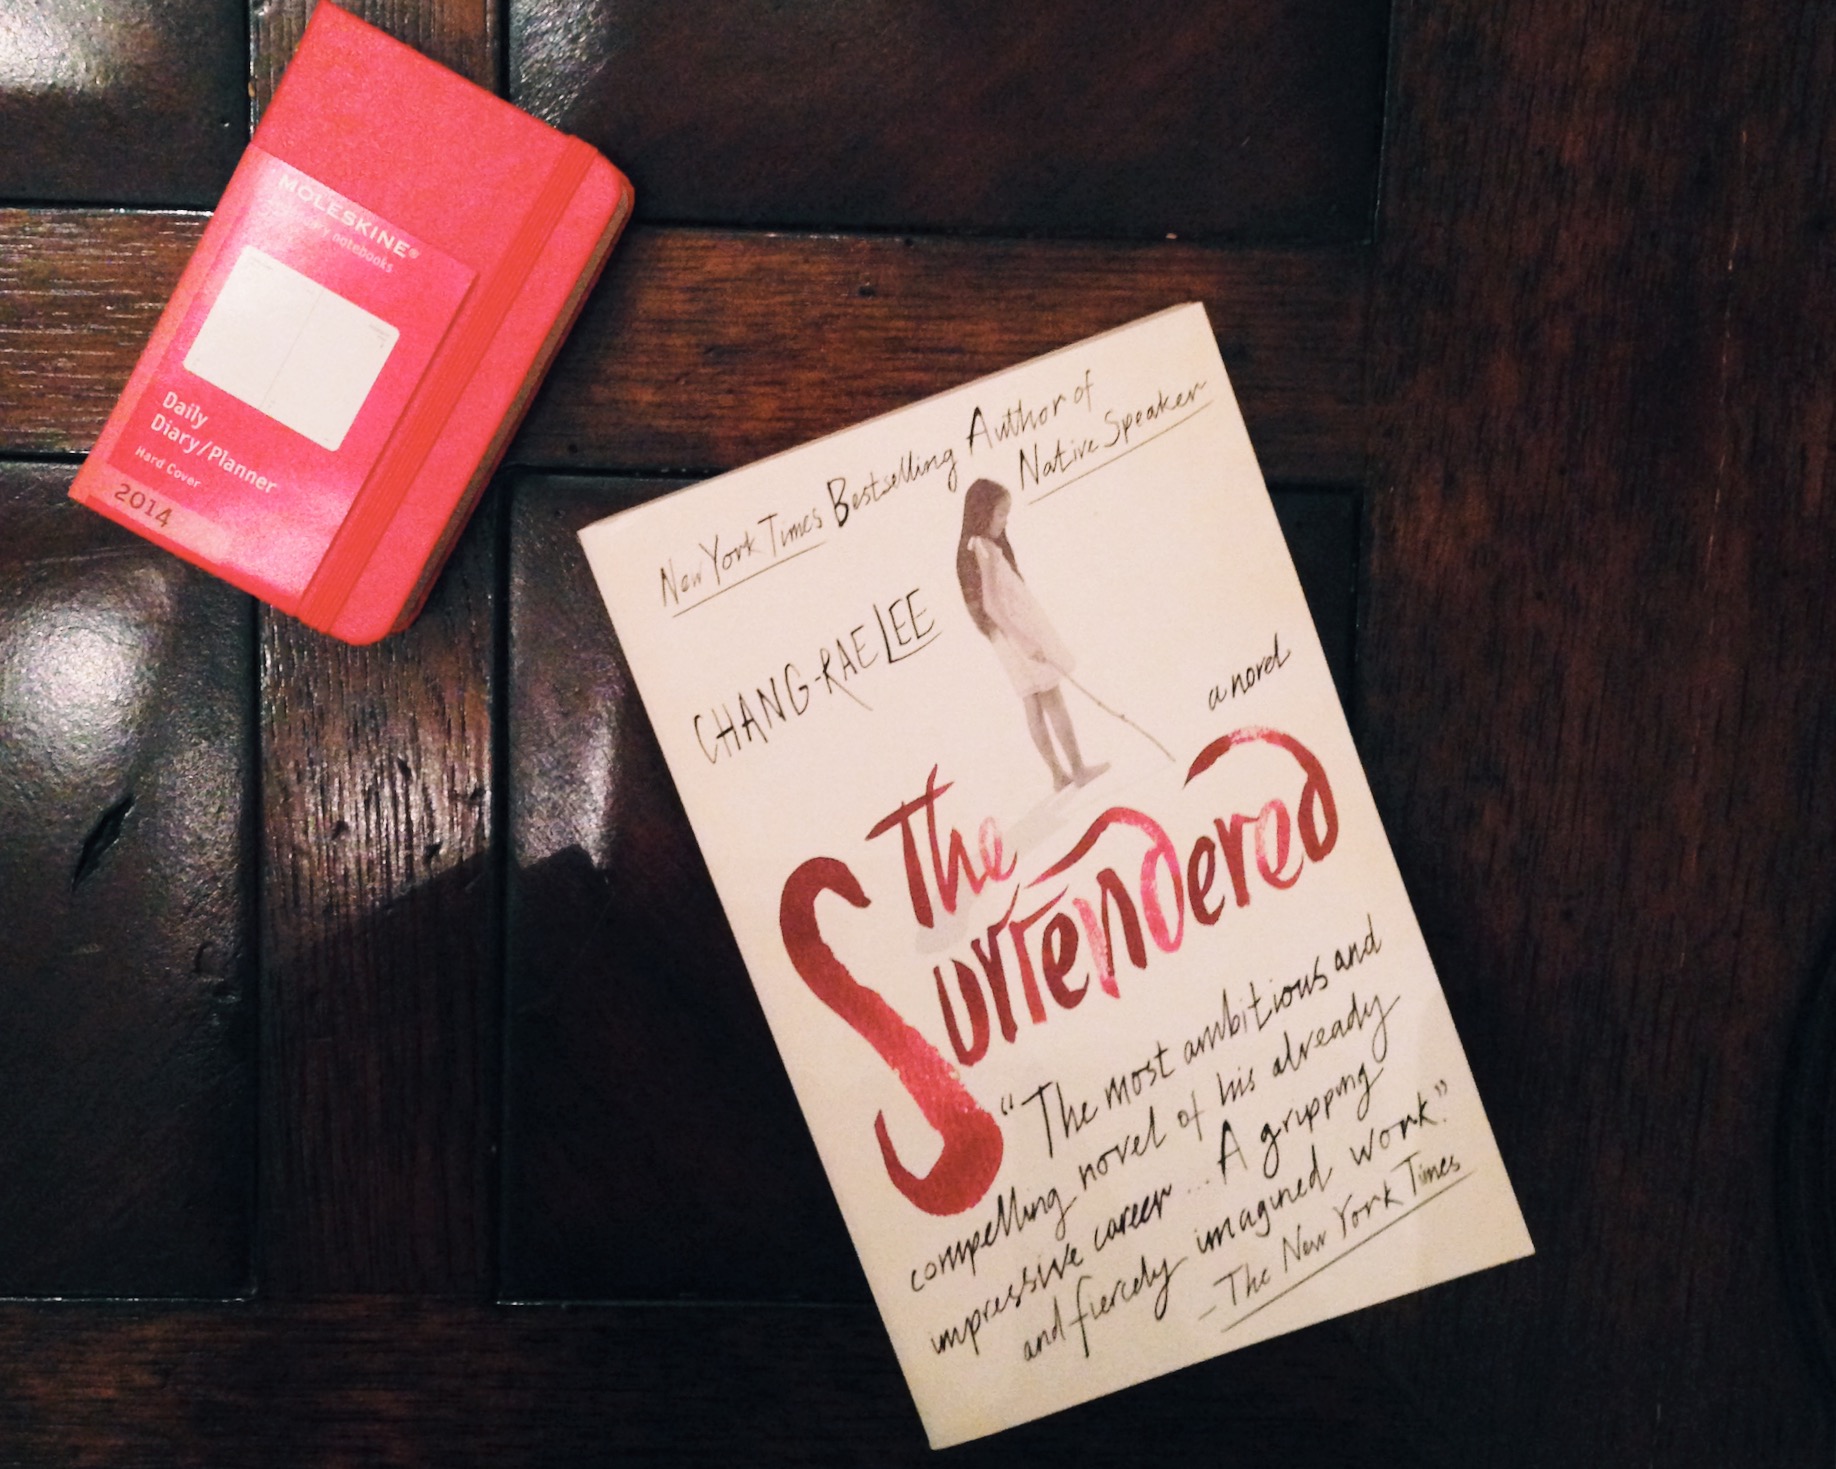 MOLESKINE®
notebooks
Daily
Diary/Planner
Hard Cover
2014
New York Times Bestselling Author of
Native Speaker
CHANG-RAE LEE
a novel
The
Surrendered
"The most ambitious and
compelling novel of his already
impressive career ... A gripping
and fiercely imagined work."
—The New York Times